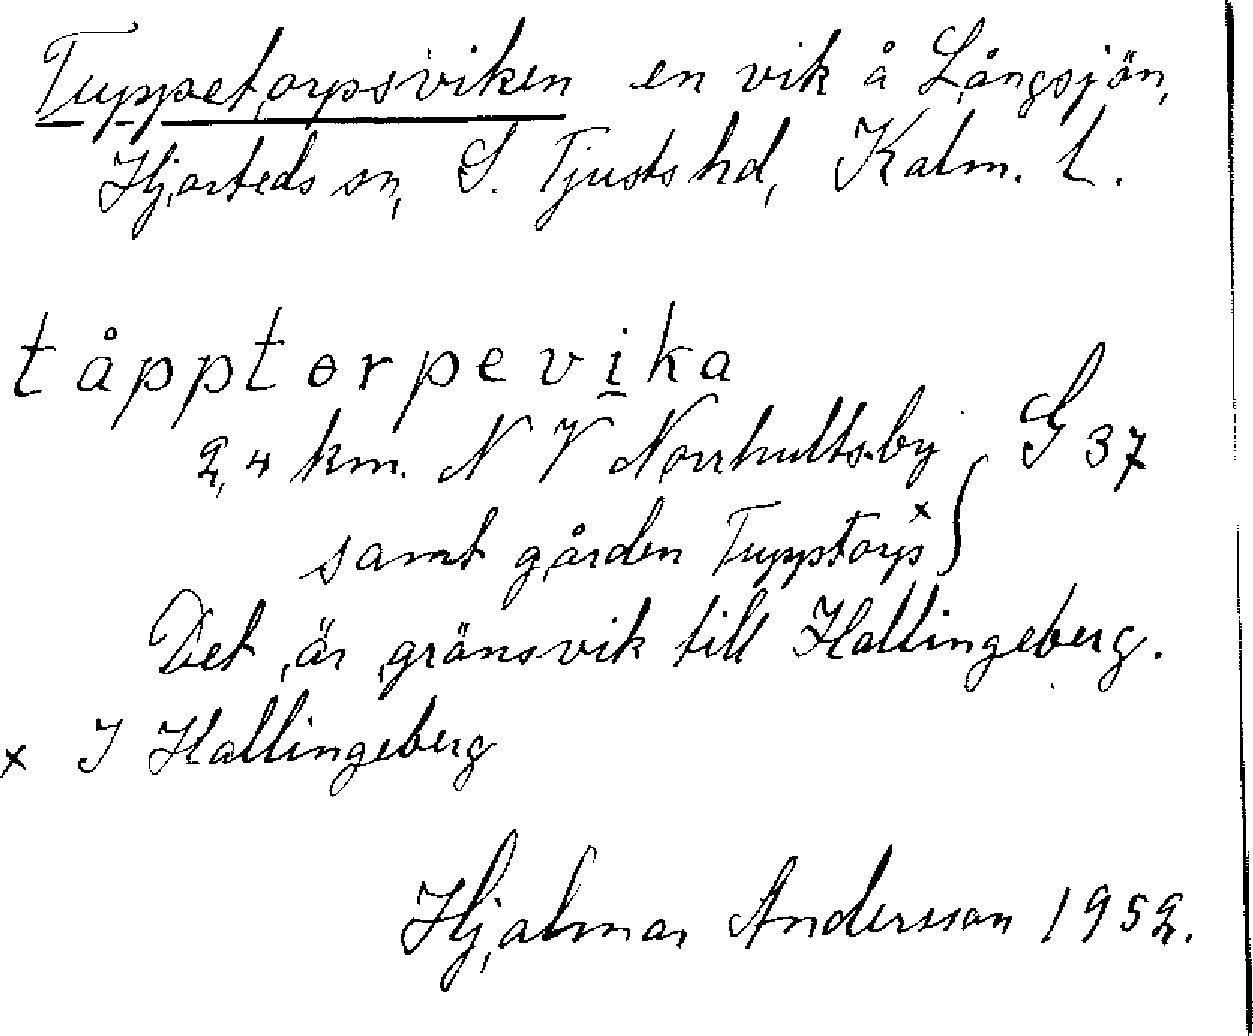 Tuppetorpsviken en vik å Långsjön,
Hjorteds sn, S. Tjusts hd, Kalm. L.
tåpptorpevika
2,4 km. N V Norrhultsby } G 37
samt gården Tupptorp x
Det är gränsvik till Hallingeberg.
x I Hallingeberg
Hjalmar Andersson 1952.